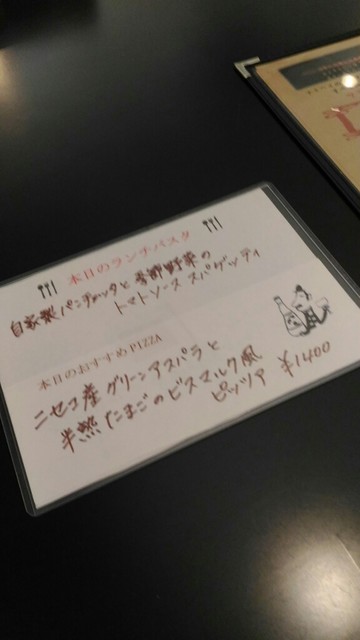 本日のランチパスタ
自家製パンチェッタと季節野菜の
トマトソース スパゲッティ
本日のおすすめPIZZA
ニセコ産 グリーンアスパラと
半熟たまごのビスマルク風
ピッツア ¥1400